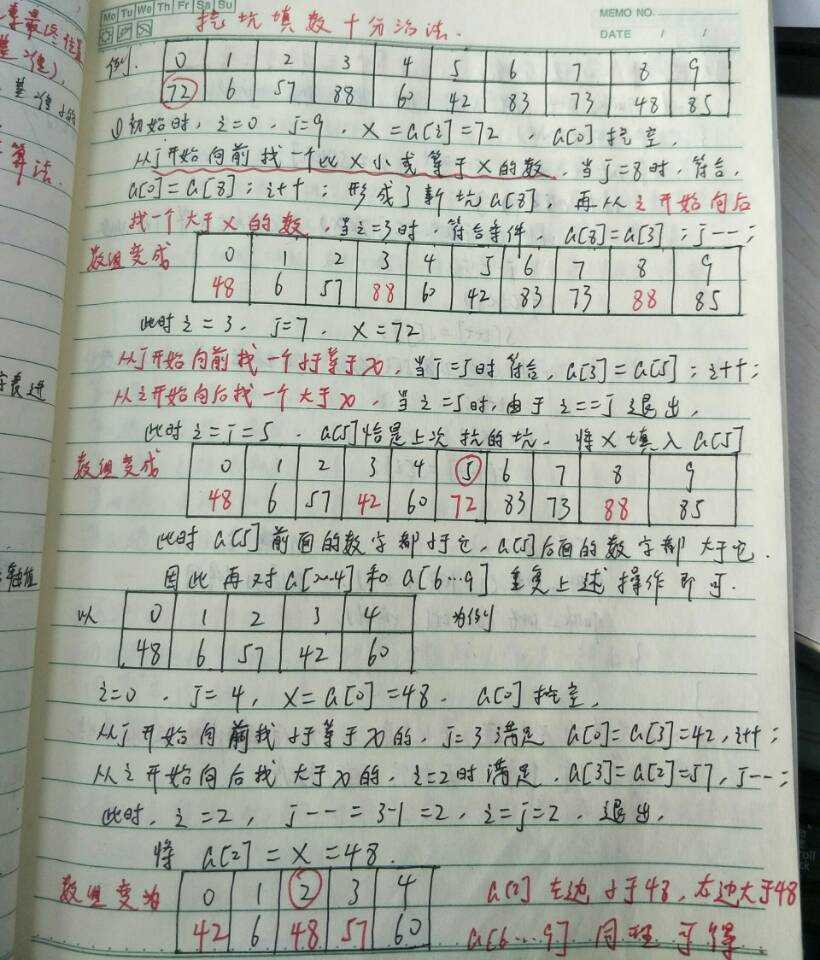 Mo Tu We Th Fr Sa Su
MEMO NO.
DATE / /
挖坑填数十分治法.
例. 0 1 2 3 4 5 6 7 8 9
72 6 57 88 60 42 83 73 48 85
①初始时, i=0, j=9, X=a[i]=72, a[0]挖空,
从j开始向前找一个比X小或等于X的数, 当j=8时, 符合,
a[0]=a[8]; i++; 形成了新坑a[8], 再从i开始向后
找一个大于X的数, 当i=3时, 符合条件, a[8]=a[3]; j--;
数组变成 0 1 2 3 4 5 6 7 8 9
48 6 57 88 60 42 83 73 88 85
此时i=3, j=7, X=72
从j开始向前找一个小于等于x, 当j=5时符合, a[3]=a[5]; i++;
从i开始向后找一个大于x, 当i=5时, 由于i==j退出,
此时i=j=5, a[5]恰是上次挖的坑, 将X填入a[5]
数组变成 0 1 2 3 4 5 6 7 8 9
48 6 57 42 60 72 83 73 88 85
此时a[5]前面的数字都小于它, a[5]后面的数字都大于它.
因此再对a[0~4]和a[6...9]重复上述操作即可.
以 0 1 2 3 4 为例
48 6 57 42 60
i=0, j=4, X=a[0]=48, a[0]挖空,
从j开始向前找小于等于x的, j=3满足 a[0]=a[3]=42, i++;
从i开始向后找大于x的, i=2时满足, a[3]=a[2]=57, j--;
此时, i=2, j--=3-1=2, i=j=2, 退出,
将a[2]=X=48.
数组变为 0 1 2 3 4 a[2]左边小于48, 右边大于48
42 6 48 57 60 a[6...9]同理可得